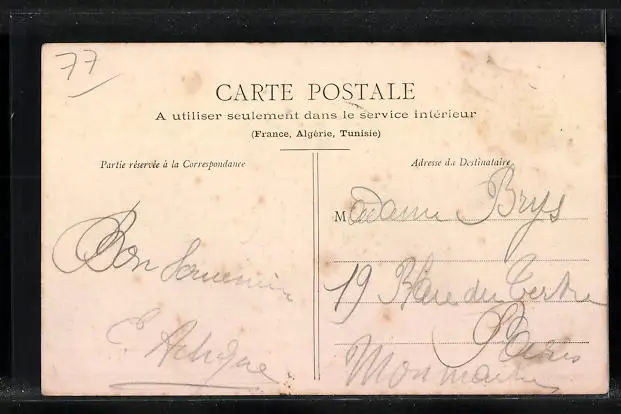 77
CARTE POSTALE
A utiliser seulement dans le service intérieur
(France, Algérie, Tunisie)
Partie réservée à la Correspondance
Adresse du Destinataire
Madame Brys
19 Place du Tertre
Paris
Bon Souvenir
E.